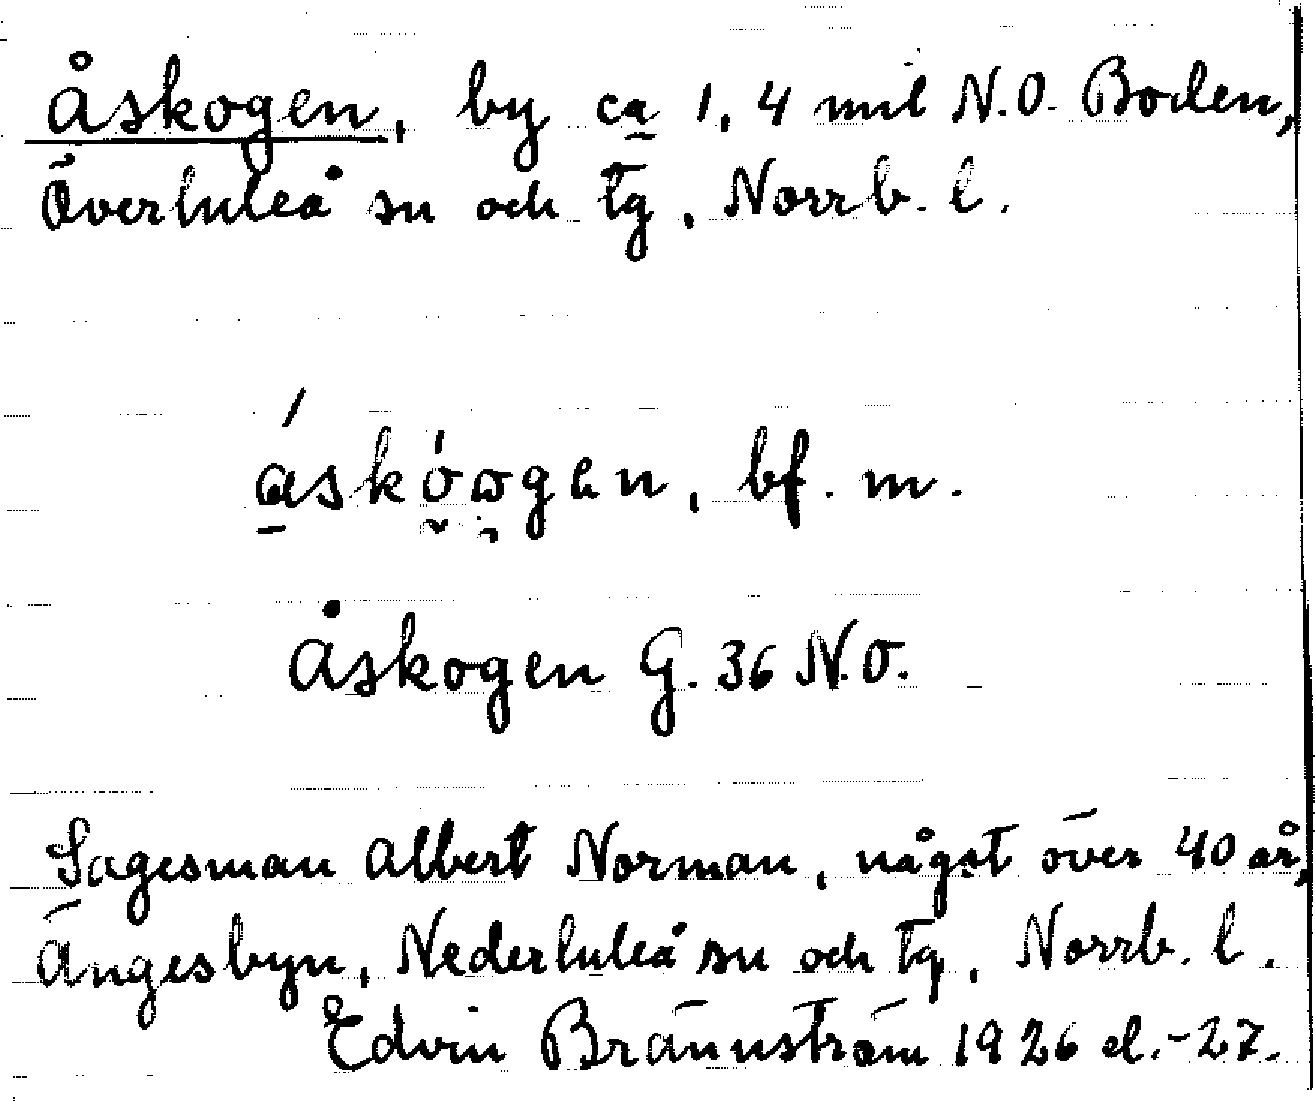 Åskogen, by ca 1,4 mil N.O. Boden,
Överluleå sn och tg, Norrb. l.
bf. m.
Åskogen G. 36 N.O.
Sagesman Albert Norman, något över 40 år,
Ängesbyn, Nederluleå sn och tg, Norrb. l.
Edvin Brännström 1926 el.-27.